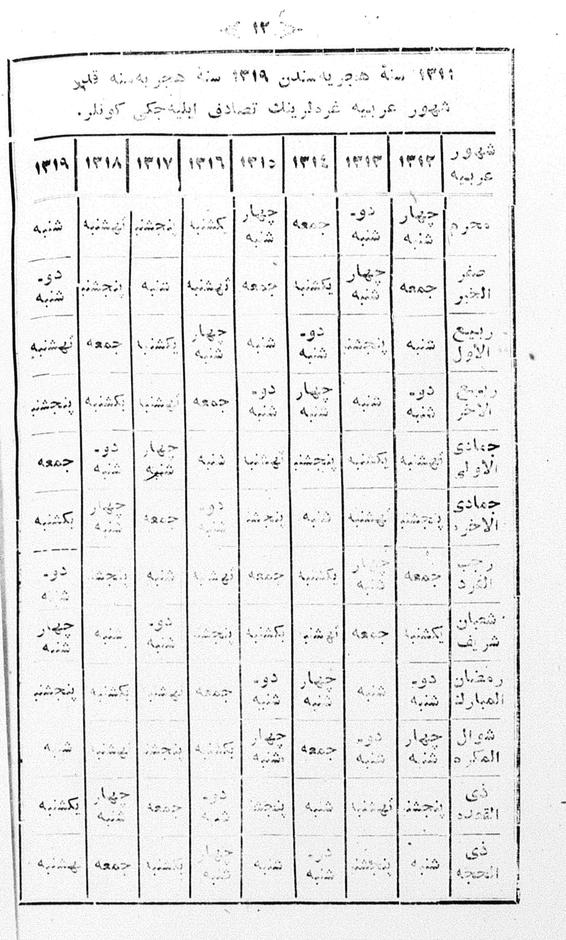 ١٣
١٣١٢ سنهٔ هجریه‌سندن ١٣١٩ سنهٔ هجریه‌سنه قدر
شهور عربیه غره‌لرینك تصادف ایلیه‌جکی کونلر.
شهور عربیه ١٣١٢ ١٣١٣ ١٣١٤ ١٣١٥ ١٣١٦ ١٣١٧ ١٣١٨ ١٣١٩
محرم چهار شنبه دو شنبه جمعه چهار شنبه یکشنبه پنجشنبه ثهشنبه شنبه
صفر الخیر جمعه چهار شنبه یکشنبه جمعه ثهشنبه شنبه پنجشنبه دو شنبه
ربیع الاول شنبه پنجشنبه دو شنبه شنبه چهار شنبه یکشنبه جمعه ثهشنبه
ربیع الاخر دو شنبه شنبه چهار شنبه دو شنبه جمعه ثهشنبه یکشنبه پنجشنبه
جمادی الاولی ثهشنبه یکشنبه پنجشنبه ثهشنبه شنبه چهار شنبه دو شنبه جمعه
جمادی الاخره پنجشنبه ثهشنبه شنبه پنجشنبه دو شنبه جمعه چهار شنبه یکشنبه
رجب الفرد جمعه چهار شنبه یکشنبه جمعه ثهشنبه شنبه پنجشنبه دو شنبه
شعبان شریف یکشنبه جمعه ثهشنبه یکشنبه پنجشنبه دو شنبه شنبه چهار شنبه
رمضان المبارك دو شنبه شنبه چهار شنبه دو شنبه جمعه ثهشنبه یکشنبه پنجشنبه
شوال المکرم چهار شنبه دو شنبه جمعه چهار شنبه یکشنبه پنجشنبه ثهشنبه شنبه
ذی القعده پنجشنبه ثهشنبه شنبه پنجشنبه دو شنبه جمعه چهار شنبه یکشنبه
ذی الحجه شنبه پنجشنبه دو شنبه شنبه چهار شنبه یکشنبه جمعه ثهشنبه